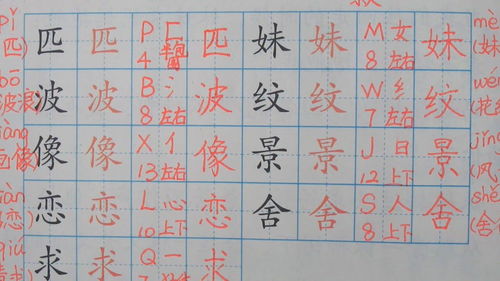 pǐ 匹 匹 P 匚 匹 妹 妹 M 女 妹 mè
(匹) 4 半包围 8 左右 (妹
bō 波 波 B 氵 波 纹 纹 W 纟 纹 wén
波浪 8 左右 7 左右
iàng 像 像 X 亻 像 景 景 J 日 景 jǐng
画像 13 左右 12 上下 (风
iàn 恋 恋 L 心 恋 舍 舍 S 人 舍 shè
恋) 10 上下 8 上下 (舍
qiú 求 求 Q 一 求